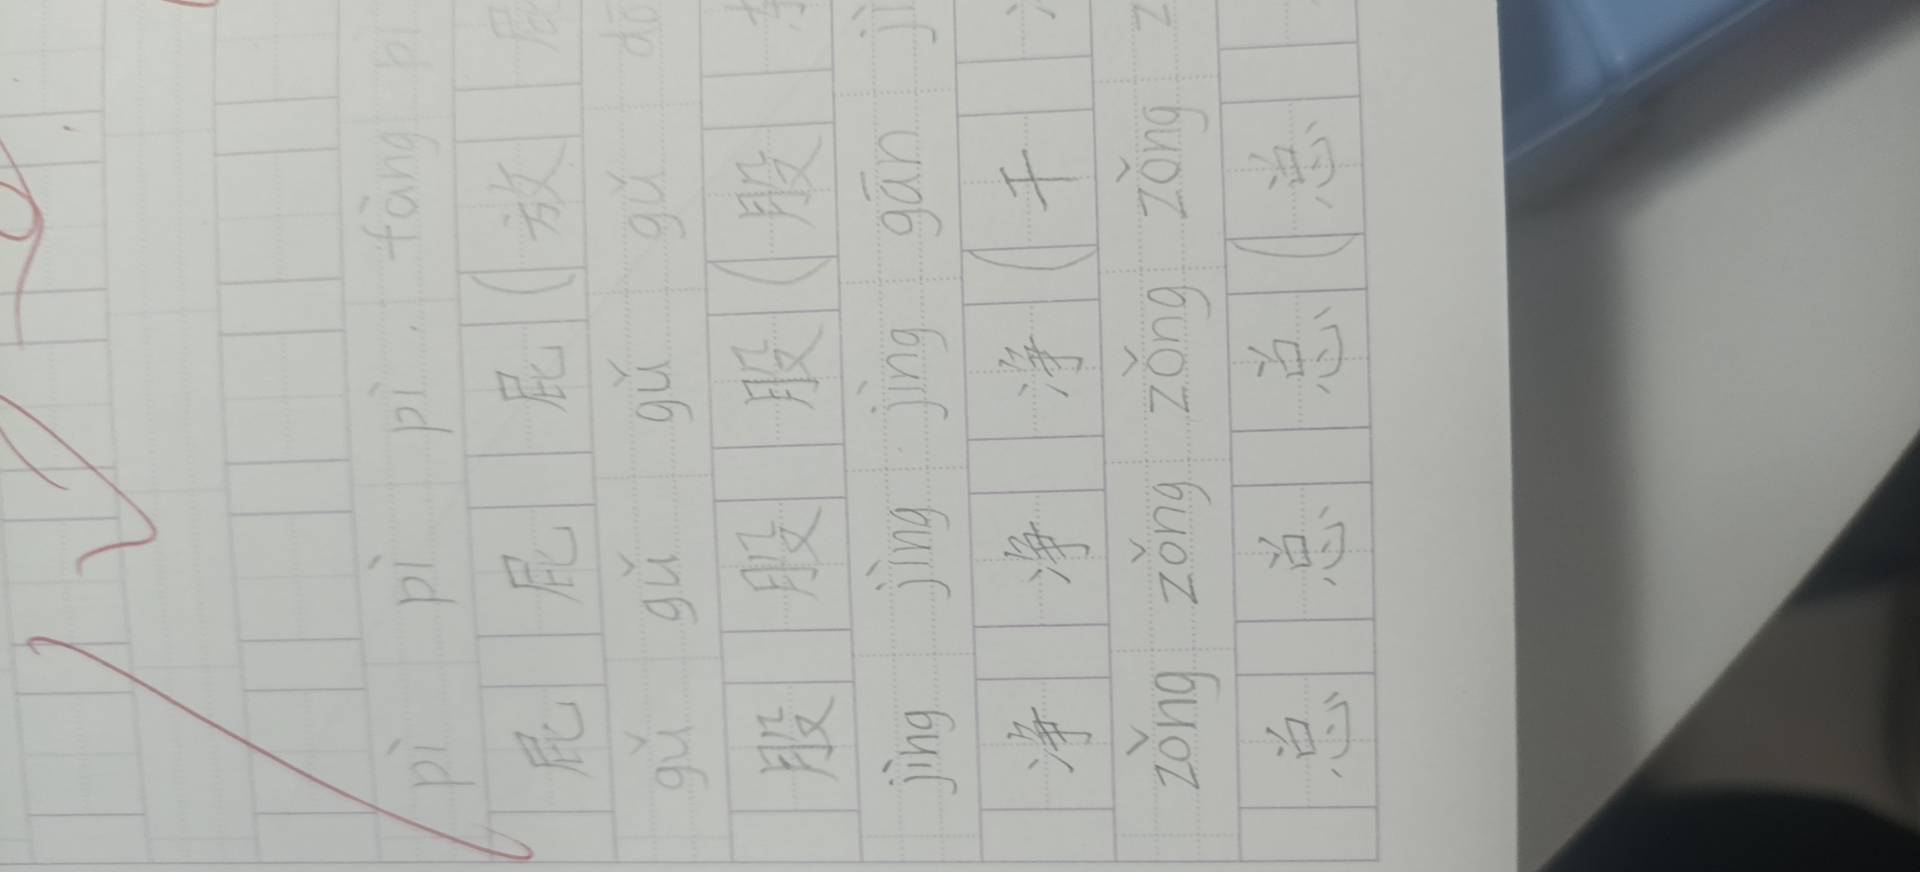 pì pì pì . fàng pì
屁 屁 屁 ( 放 屁
gǔ gǔ gǔ gǔ
股 股 股 ( 股
jìng jìng jìng gān
净 净 净 ( 干
zǒng zǒng zǒng zǒng
总 总 总 ( 总